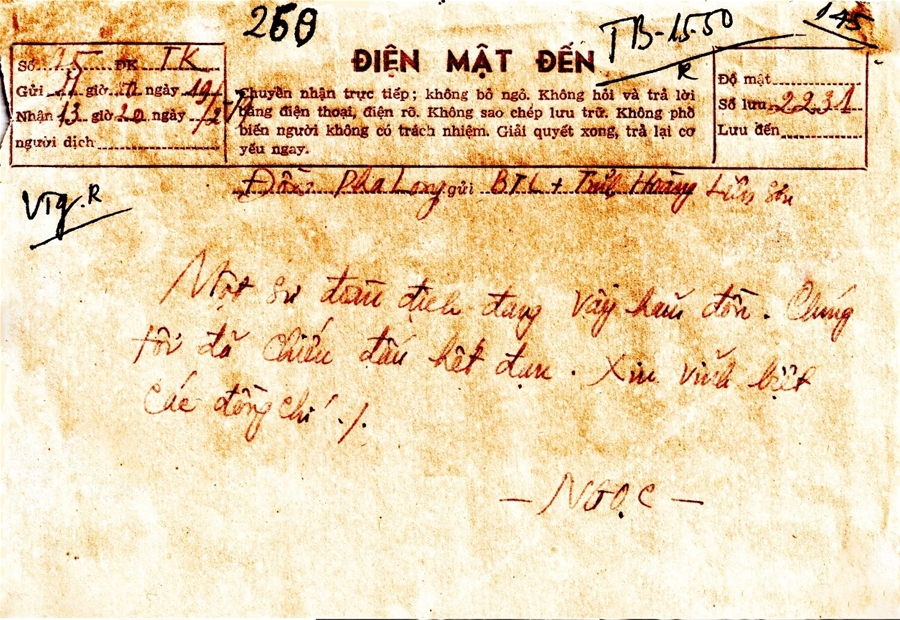 250
TB-15.50
R
145
ĐIỆN MẬT ĐẾN
Số 15 ĐK TK
Gửi 11 giờ 10 ngày 19/
Nhận 13 giờ 20 ngày
người dịch
Chuyển nhận trực tiếp; không bỏ ngỏ. Không hỏi và trả lời
bằng điện thoại, điện rõ. Không sao chép lưu trữ. Không phổ
biến người không có trách nhiệm. Giải quyết xong, trả lại cơ
yếu ngay.
Độ mật
Số lưu 2231
Lưu đến
VTg.R
Đồn Pha Long gửi BTL + Tỉnh Hoàng Liên Sơn
Một sư đoàn địch đang vây hãm đồn. Chúng
tôi đã chiến đấu hết đạn. Xin vĩnh biệt
các đồng chí ./.
— NGỌC —